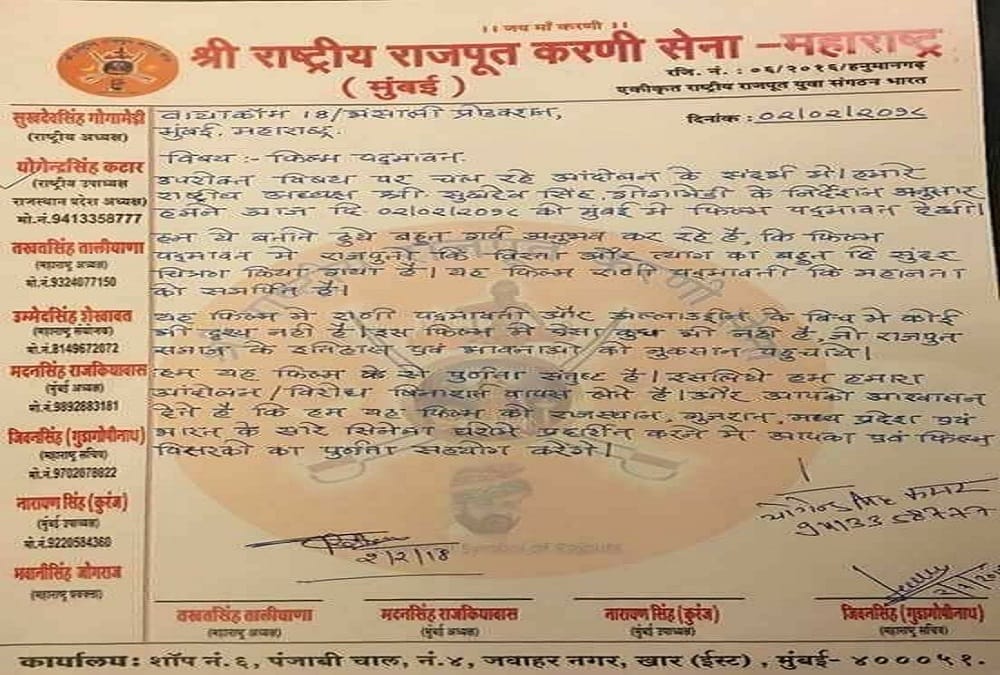 ।। जय माँ करणी ।।
श्री राष्ट्रीय राजपूत करणी सेना -महाराष्ट्र
( मुंबई )
रजि. नं. : ०६/२०१६/हनुमानगढ़
एकीकृत राष्ट्रीय राजपूत युवा संगठन भारत
सुखदेवसिंह गोगामेड़ी
(राष्ट्रीय अध्यक्ष)
योगेन्द्रसिंह कटार
(राष्ट्रीय उपाध्यक्ष
राजस्थान प्रदेश अध्यक्ष)
मो.नं.9413358777
तखतसिंह तालीयाणा
(महाराष्ट्र अध्यक्ष)
मो.नं.9324077150
उम्मेदसिंह शेखावत
(महाराष्ट्र संयोजक)
मो.नं.8149672072
मदनसिंह राजकियावास
(मुंबई अध्यक्ष)
मो.नं.9892683181
जिवनसिंह (गुडागोपीनाथ)
(महाराष्ट्र सचिव)
मो.नं.9702678822
नारायण सिंह (कुरंज)
(मुंबई उपाध्यक्ष)
मो.नं.9220584360
भवानीसिंह जोगराज
(महाराष्ट्र प्रवक्ता)
वायाकॉम 18/भंसाली प्रोडक्शन,
मुंबई, महाराष्ट्र.
दिनांक : ०२/०२/२०१८
विषय :- फिल्म पद्मावत.
उपरोक्त विषय पर चल रहे आंदोलन के संदर्भ में। हमारे
राष्ट्रीय अध्यक्ष श्री सुखदेव सिंह गोगामेडी के निर्देशन अनुसार
हमने आज दि ०२/०२/२०१८ को मुंबई मे फिल्म पद्मावत देखी।
हम ये बताते हुये बहुत गर्व अनुभव कर रहे है, कि फिल्म
पद्मावत मे राजपूतो कि विरता और त्याग का बहुत हि सुंदर
चित्रण किया गया है। यह फिल्म राणी पद्मावती कि महानता
को समर्पित है।
यह फिल्म मे राणी पद्मावती और अल्लाउद्दीन के बिच मे कोई
भी दृश्य नही है। इस फिल्म मे ऐसा कुछ भी नही है, जो राजपूत
समाज के इतिहास एवं भावनाओ को नुकसान पहुचाये।
हम यह फिल्म के से पुर्णता संतुष्ट है। इसलिये हम हमारा
आंदोलन/विरोध बिनाशर्त वापस लेते है। और आपको आश्वासन
देते है कि हम यह फिल्म को राजस्थान, गुजरात, मध्य प्रदेश एवं
भारत के सारे सिनेमा घरोमे प्रदर्शित करने मे आपका एवं फिल्म
वितरको का पुर्णता सहयोग करेगे।
Symbol of Rajputs
योगेन्द्र सिंह कटार
9413358777
2/2/18
तखतसिंह तालीयाणा
(महाराष्ट्र अध्यक्ष)
मदनसिंह राजकियावास
(मुंबई अध्यक्ष)
नारायण सिंह (कुरंज)
(मुंबई उपाध्यक्ष)
जिवनसिंह (गुडागोपीनाथ)
(महाराष्ट्र सचिव)
कार्यालय: शॉप नं.६, पंजाबी चाल, नं.४, जवाहर नगर, खार (ईस्ट) , मुंबई- ४०००५१.